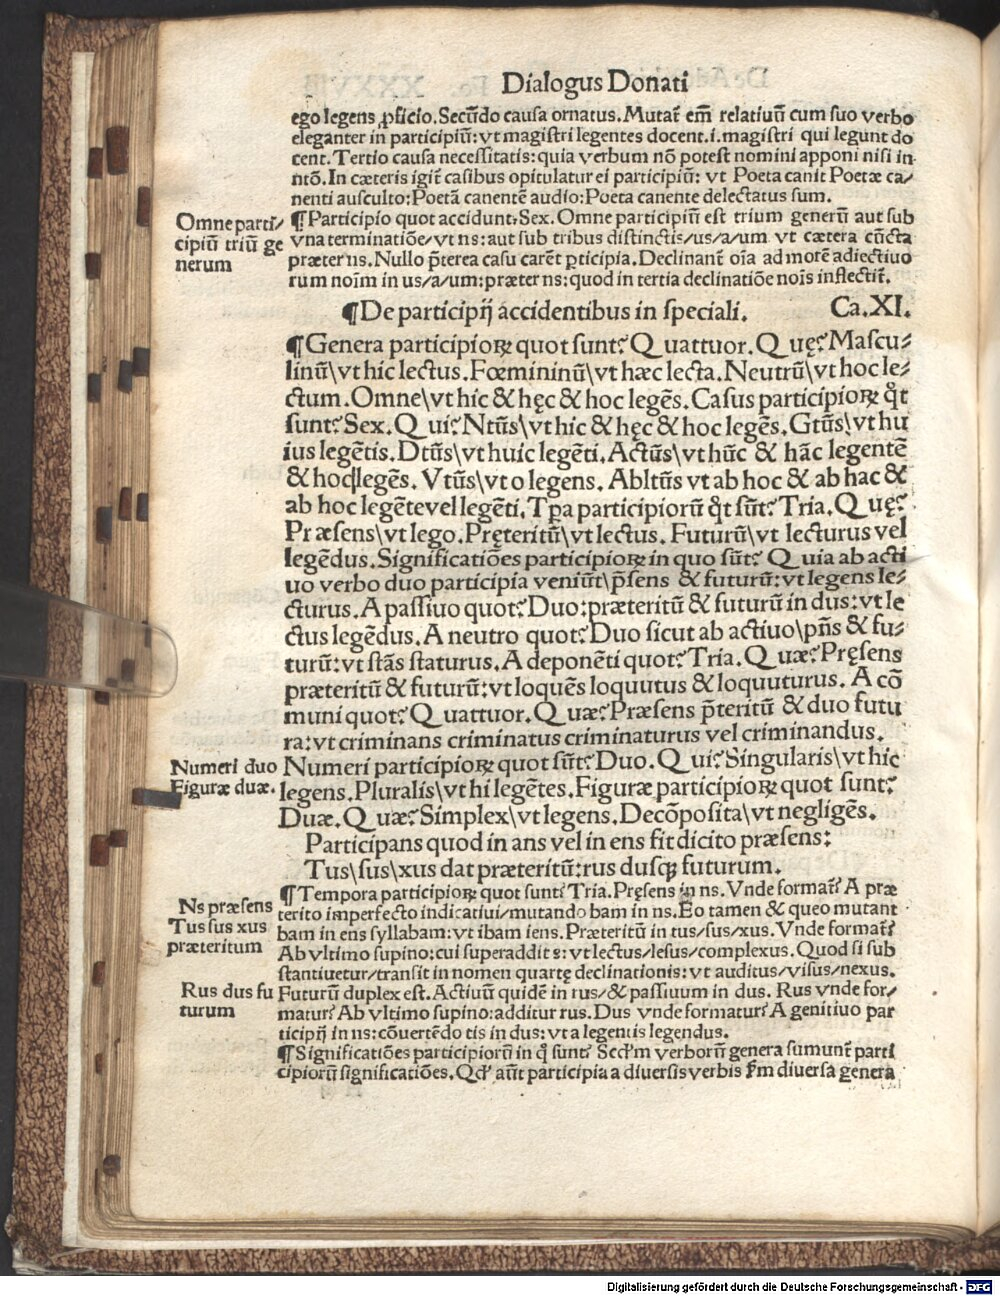 Dialogus Donati
ego legens ꝓficio. Secūdo causa ornatus. Mutat̄ em̄ relatiuū cum suo verbo
eleganter in participiū: vt magistri legentes docent .i. magistri qui legunt do
cent. Tertio causa necessitatis: quia verbum nō potest nomini apponi nisi in
ntō. In cæteris igit̄ casibus opitulatur ei participiū: vt Poeta canit Poetæ ca/
nenti ausculto: Poetā canentē audio: Poeta canente delectatus sum.
Omne parti/
cipiū triū ge
nerum
¶ Participio quot accidunt: Sex. Omne participiū est trium generū aut sub
vna terminatiōe/ vt ns: aut sub tribus distinctis/ us/a/um vt cætera cūcta
præter ns. Nullo p̄terea casu carēt ꝑticipia. Declinant̄ oīa ad morē adiectiuo
rum noīm in us/a/um: præter ns: quod in tertia declinatiōe noīs inflectit̄.
¶ De participij accidentibus in speciali. Ca. XI.
¶ Genera participioꝝ quot sunt? Quattuor. Quę? Mascu⸗
linū\ vt hic lectus. Fœmininū\ vt hæc lecta. Neutrū\ vt hoc le⸗
ctum. Omne\ vt hic & hęc & hoc legēs. Casus participioꝝ q̊t
sunt? Sex. Qui? Ntūs\ vt hic & hęc & hoc legēs. Gtūs\ vt hu
ius legētis. Dtūs\ vt huic legēti. Actūs\ vt hūc & hāc legentē
& hoc legēs. Vtūs\ vt o legens. Abltūs vt ab hoc & ab hac &
ab hoc legēte vel legēti. Tꝑa participiorū q̊t sūt? Tria. Quę?
Præsens\ vt lego. Pręteritū\ vt lectus. Futurū\ vt lecturus vel
legēdus. Significatiōes participioꝝ in quo sūt? Quia ab acti
uo verbo duo participia veniūt\ p̄sens & futurū: vt legens le⸗
cturus. A passiuo quot? Duo: præteritū & futurū in dus: vt le
ctus legēdus. A neutro quot? Duo sicut ab actiuo\ pn̄s & fu⸗
turū: vt stās staturus. A deponēti quot? Tria. Quæ? Pręsens
præteritū & futurū: vt loquēs loquutus & loquuturus. A cō
muni quot? Quattuor. Quæ? Præsens p̄teritū & duo futu
ra: vt criminans criminatus criminaturus vel criminandus.
Numeri duo
Figuræ duæ.
Numeri participioꝝ quot sūt? Duo. Qui? Singularis\ vt hic
legens. Pluralis\ vt hi legētes. Figuræ participioꝝ quot sunt?
Duæ. Quæ? Simplex\ vt legens. Decōposita\ vt negligēs.
Participans quod in ans vel in ens fit dicito præsens:
Tus\ sus\ xus dat præteritū: rus dusqꝫ futurum.
Ns præsens
Tus sus xus
præteritum
¶ Tempora participioꝝ quot sunt? Tria. Pręsens in ns. Vnde format̄? A præ
terito imperfecto indicatiui/ mutando bam in ns. Eo tamen & queo mutant
bam in ens syllabam: vt ibam iens. Præteritū in tus/sus/xus. Vnde format̄?
Ab vltimo supino: cui superaddit s: vt lectus/ lesus/ complexus. Quod si sub
stantiuetur/ transit in nomen quartę declinationis: vt auditus/ visus/ nexus.
Rus dus fu
turum
Futurū duplex est. Actiuū quidē in rus/ & passiuum in dus. Rus vnde for⸗
matur? Ab vltimo supino: additur rus. Dus vnde formatur? A genitiuo par
ticipij in ns: cōuertēdo tis in dus: vt a legentis legendus.
¶ Significatiōes participiorū in q̊ sunt? Scd'm verborū genera sumunt̄ parti
cipiorū significatiōes. Qd' aūt participia a diuersis verbis s'm diuersa genera
Digitalisierung gefördert durch die Deutsche Forschungsgemeinschaft - DFG